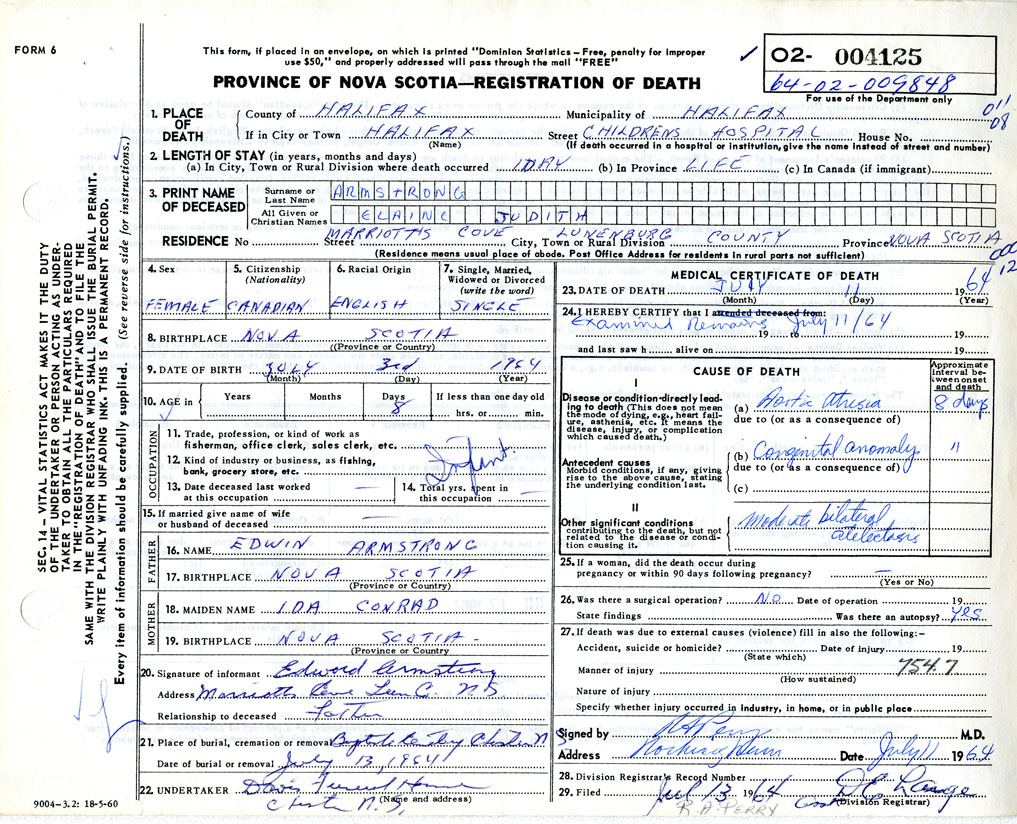 FORM 6
This form, if placed in an envelope, on which is printed "Dominion Statistics – Free, penalty for improper
use $50," and properly addressed will pass through the mail "FREE"
✓ O2- 004125
64-02-009848
For use of the Department only
PROVINCE OF NOVA SCOTIA—REGISTRATION OF DEATH
011
08
1. PLACE OF DEATH
County of HALIFAX Municipality of HALIFAX
If in City or Town HALIFAX Street CHILDRENS HOSPITAL House No.
(Name) (If death occurred in a hospital or institution, give the name instead of street and number)
2. LENGTH OF STAY (in years, months and days)
(a) In City, Town or Rural Division where death occurred 1DAY (b) In Province LIFE (c) In Canada (if immigrant)
3. PRINT NAME OF DECEASED
Surname or Last Name ARMSTRONG
All Given or Christian Names ELAINE JUDITH
RESIDENCE No Street MARRIOTTS COVE City, Town or Rural Division LUNENBURG COUNTY Province NOVA SCOTIA
(Residence means usual place of abode. Post Office Address for residents in rural parts not sufficient)
12
4. Sex
FEMALE
5. Citizenship (Nationality)
CANADIAN
6. Racial Origin
ENGLISH
7. Single, Married, Widowed or Divorced (write the word)
SINGLE
8. BIRTHPLACE NOVA SCOTIA
(Province or Country)
9. DATE OF BIRTH JULY 3rd 1964
(Month) (Day) (Year)
10. AGE in Years Months Days If less than one day old
8 hrs. or min.
OCCUPATION
11. Trade, profession, or kind of work as
fisherman, office clerk, sales clerk, etc.
12. Kind of industry or business, as fishing,
bank, grocery store, etc.
Infant.
13. Date deceased last worked at this occupation —
14. Total yrs. spent in this occupation —
15. If married give name of wife
or husband of deceased —
FATHER
16. NAME EDWIN ARMSTRONG
17. BIRTHPLACE NOVA SCOTIA
(Province or Country)
MOTHER
18. MAIDEN NAME IDA CONRAD
19. BIRTHPLACE NOVA SCOTIA -
(Province or Country
20. Signature of informant Edword Armstrong
Address Marriotts Cove Lun C. NS
Relationship to deceased Father
21. Place of burial, cremation or removal Chester N S
Date of burial or removal July 13, 1964
22. UNDERTAKER Davis Funeral Home
Chester N.S. (Name and address)
9004–3.2: 18-5-60
MEDICAL CERTIFICATE OF DEATH
23. DATE OF DEATH JULY 11 1964
(Month) (Day) (Year)
24. I HEREBY CERTIFY that I attended deceased from:
Examined Remains July 11/64 19 to 19
and last saw h alive on 19
CAUSE OF DEATH
Approximate interval between onset and death
I
Disease or condition directly leading to death (This does not mean the mode of dying, e.g., heart failure, asthenia, etc. It means the disease, injury, or complication which caused death.)
(a) Aortic Atresia 8 days
due to (or as a consequence of)
Antecedent causes
Morbid conditions, if any, giving rise to the above cause, stating the underlying condition last.
(b) Congenital anomaly "
due to (or as a consequence of)
(c)
II
Other significant conditions
contributing to the death, but not related to the disease or condition causing it.
moderate bilateral
atelectasis
25. If a woman, did the death occur during
pregnancy or within 90 days following pregnancy? —
(Yes or No)
26. Was there a surgical operation? No Date of operation 19
State findings Was there an autopsy? Yes
27. If death was due to external causes (violence) fill in also the following:–
Accident, suicide or homicide? Date of injury 19
(State which)
Manner of injury 754.7
(How sustained)
Nature of injury
Specify whether injury occurred in industry, in home, or in public place
Signed by R A Perry M.D.
Address Date July 11 1964
28. Division Registrar's Record Number
29. Filed Jul 13 1964
(Division Registrar)
R. A. PERRY
SEC. 14 – VITAL STATISTICS ACT MAKES IT THE DUTY
OF THE UNDERTAKER OR PERSON ACTING AS UNDER-
TAKER TO OBTAIN ALL THE PARTICULARS REQUIRED
IN THE "REGISTRATION OF DEATH" AND TO FILE THE
SAME WITH THE DIVISION REGISTRAR WHO SHALL ISSUE THE BURIAL PERMIT.
WRITE PLAINLY WITH UNFADING INK. THIS IS A PERMANENT RECORD.
Every item of information should be carefully supplied. (See reverse side for instructions.)